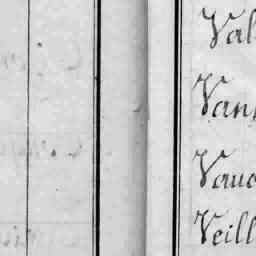 Val
Van
Vauc
Veill